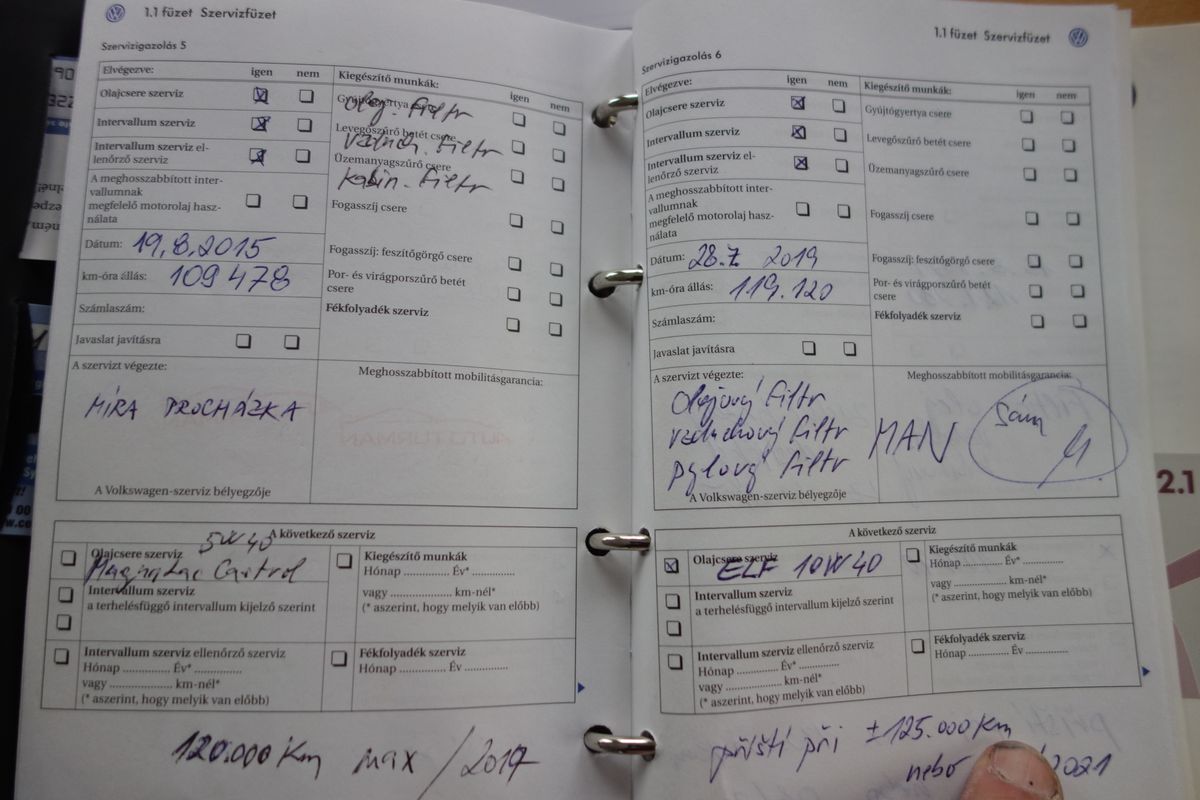 1.1 füzet Szervizfüzet
Szervizigazolás 5
Elvégezve: igen nem
Olajcsere szerviz
Intervallum szerviz
Intervallum szerviz el-
lenőrző szerviz
A meghosszabbított inter-
vallumnak
megfelelő motorolaj hasz-
nálata
Dátum: 19.8.2015
km-óra állás: 109 478
Számlaszám:
Javaslat javításra
Kiegészítő munkák: igen nem
Gyújtógyertya csere
olej. filtr
Levegőszűrő betét csere
vzduch. filtr
Üzemanyagszűrő csere
kabin. filtr
Fogasszíj csere
Fogasszíj: feszítőgörgő csere
Por- és virágporszűrő betét
csere
Fékfolyadék szerviz
A szervizt végezte:
MÍRA PROCHÁZKA
A Volkswagen-szerviz bélyegzője
Meghosszabbított mobilitásgarancia:
AUTOTURMAN
A következő szerviz
5W40
Olajcsere szerviz
Magnatec Castrol
Intervallum szerviz
a terhelésfüggő intervallum kijelző szerint
Intervallum szerviz ellenőrző szerviz
Hónap ............. Év* .................
vagy ...................... km-nél*
(* aszerint, hogy melyik van előbb)
Kiegészítő munkák
Hónap .............. Év* ...............
vagy .................... km-nél*
(* aszerint, hogy melyik van előbb)
Fékfolyadék szerviz
Hónap .............. Év ...............
120.000 km max / 2017
1.1 füzet Szervizfüzet
Szervizigazolás 6
Elvégezve: igen nem
Olajcsere szerviz
Intervallum szerviz
Intervallum szerviz el-
lenőrző szerviz
A meghosszabbított inter-
vallumnak
megfelelő motorolaj hasz-
nálata
Dátum: 28.7. 2019
km-óra állás: 119.120
Számlaszám:
Javaslat javításra
Kiegészítő munkák: igen nem
Gyújtógyertya csere
Levegőszűrő betét csere
Üzemanyagszűrő csere
Fogasszíj csere
Fogasszíj: feszítőgörgő csere
Por- és virágporszűrő betét
csere
Fékfolyadék szerviz
A szervizt végezte:
Olejový filtr
vzduchový filtr
pylový filtr
MAN
A Volkswagen-szerviz bélyegzője
Meghosszabbított mobilitásgarancia:
Sám
A következő szerviz
Olajcsere szerviz
ELF 10W40
Intervallum szerviz
a terhelésfüggő intervallum kijelző szerint
Intervallum szerviz ellenőrző szerviz
Hónap ............. Év* ...............
vagy ...................... km-nél*
(* aszerint, hogy melyik van előbb)
Kiegészítő munkák
Hónap .............. Év* ...............
vagy .................... km-nél*
(* aszerint, hogy melyik van előbb)
Fékfolyadék szerviz
Hónap .............. Év ...............
příští při ± 125.000 km
nebo 2021
2.1